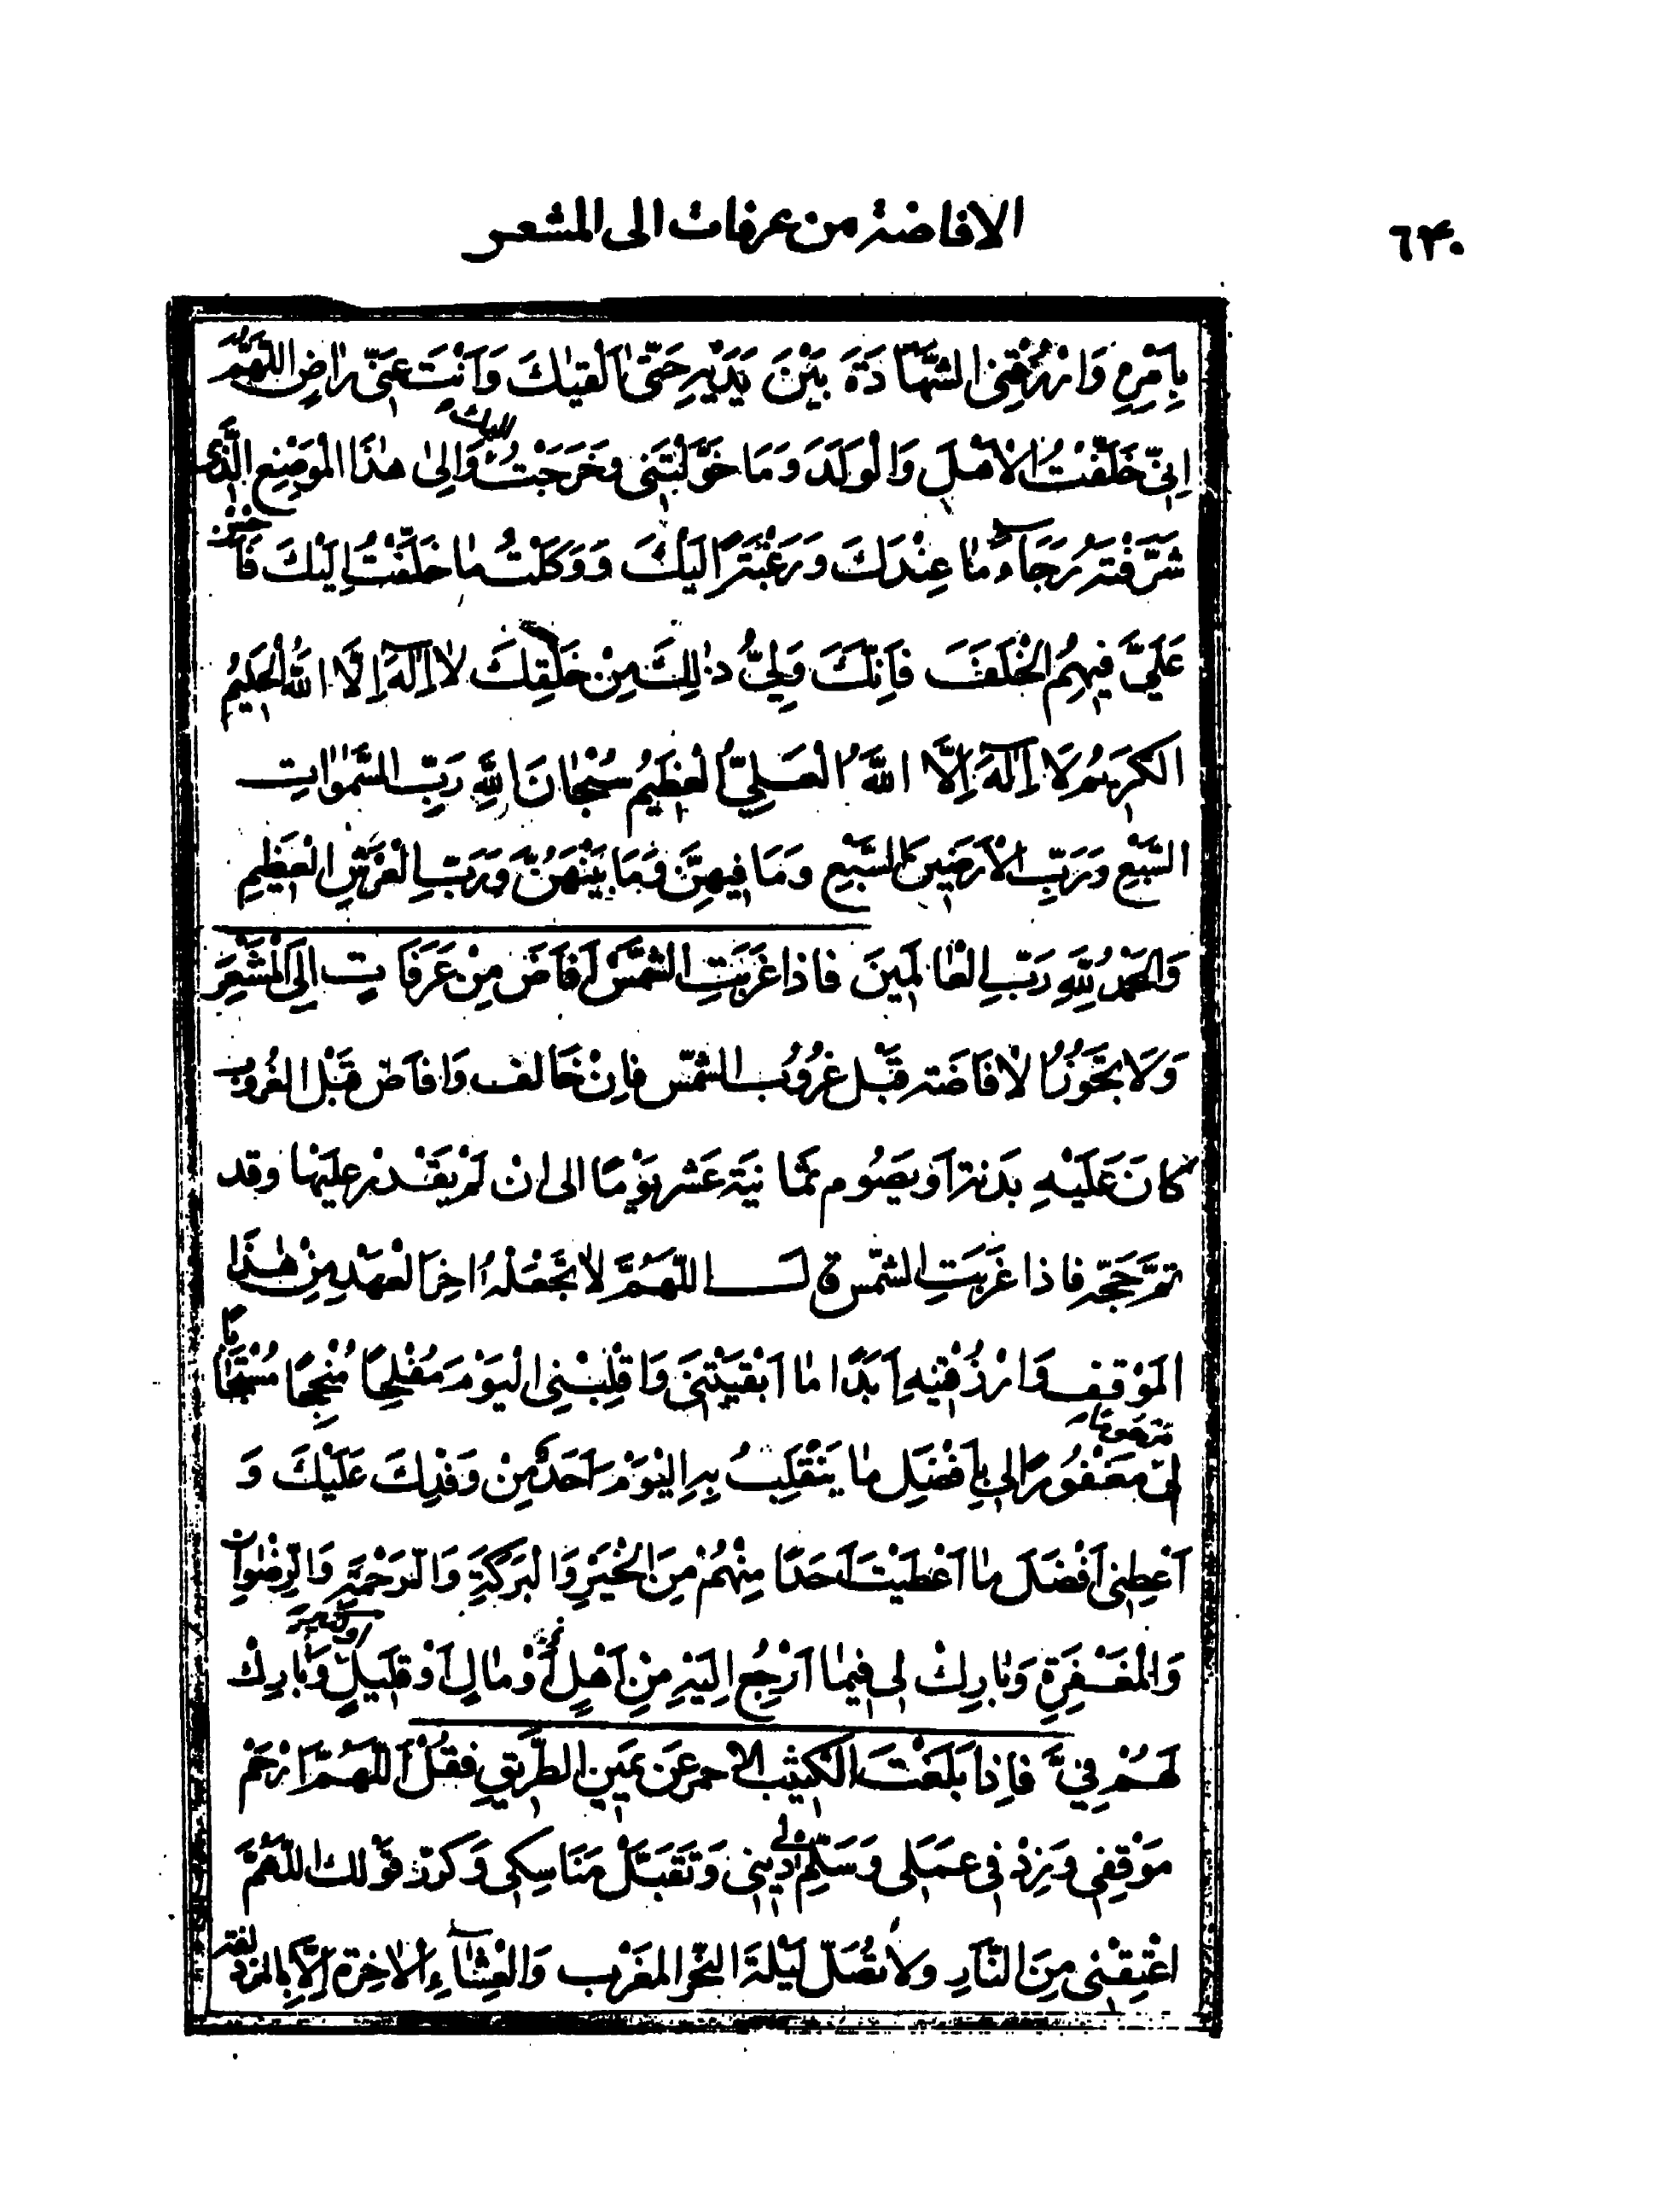 الافاضة من عرفات الى المشعر
٦۴٠
بِاَمْرِهِ وَارْزُقْنِى الشَّهَادَةَ بَيْنَ يَدَيْهِ حَتّىٰ اَلْقيٰكَ وَاَنْتَ عَنّى رٰاضٍ اَللّهُمَّ
اِنّى خَلَّفْتُ الْاَهْلَ وَالْوَلَدَ وَمَا خَوَّلْتَنى وَخَرَجْتُ اِلَيْكَ وَاِلىٰ هٰذَا الْمَوْضِعِ الَّذى
شَرَّفْتَهُ رَجَاءَ مٰا عِنْدَكَ وَرَغْبَةً اِلَيْكَ وَوَكَلْتُ مٰا خَلَّفْتُ اِلَيْكَ فَاَحْسِنْ
عَلَيَّ فيهِمُ الْخَلَفَ فَاِنَّكَ وَلِيُّ ذٰلِكَ مِنْ خَلْقِكَ لٰا اِلٰهَ اِلَّا اللّٰهُ الْحَليمُ
الْكَريمُ لَا اِلٰهَ اِلَّا اللّٰهُ الْعَلِيُّ الْعَظيمُ سُبْحٰانَ اللّٰهِ رَبِّ السَّمٰوٰاتِ
السَّبْعِ وَرَبِّ الْاَرَضينَ السَّبْعِ وَمَا فيهِنَّ وَمَا بَيْنَهُنَّ وَرَبِّ الْعَرْشِ الْعَظيمِ
وَالْحَمْدُ لِلّٰهِ رَبِّ الْعٰالَمينَ فاذا غَرَبَتِ الشَّمْسُ اَفَاضَ مِنْ عَرَفَاتٍ اِلَى الْمَشْعَرِ
وَلَا يَجُوزُ الْاِفَاضَة قَبْل غُرُوُبِ الشَّمْس فاِنْ خَالف وَافاَض قَبْل الغُرُوُب
كانَ عَلَيْهِ بَدَنة اَوْ يَصُوم ثَمَانِيَة عَشر يَوْمًا الى ان لَمْ يَقْدر عليْها وقد
تمَّ حَجّه فاذا غَرَبَتِ الشَّمْس قال اللّهُمَّ لَا تَجْعَلْهُ اٰخِرَ الْعَهْدِ مِنْ هٰذَا
الْمَوْقِفِ وَارْزُقْنيهِ اَبَدًا مٰا اَبْقَيْتَنى وَاقْلِبْنِى الْيَوْمَ مُفْلِحًا مُنْجِحًا مُسْتَجٰابًا
لى مَغْفُورًا لى بِاَفْضَلِ مٰا يَنْقَلِبُ بِهِ الْيَوْمَ اَحَدٌ مِنْ وَفْدِكَ عَلَيْكَ وَ
اَعْطِنى اَفْضَلَ مٰا اَعْطَيْتَ اَحَدًا مِنْهُمْ مِنَ الْخَيْرِ وَالْبَرَكَةِ وَالرَّحْمَةِ وَالرِّضْوٰانِ
وَالْمَغْفِرَةِ وَبٰارِكْ لى فيمٰا اَرْجِعُ اِلَيْهِ مِنْ اَهْلٍ اَوْ مٰالٍ اَوْ قَليلٍ اَوْ كَثير وَبٰارِكْ
لَهُمْ فِيَّ فَاِذا بَلَغْتَ الكَثِيْب الاَحمر عَن يَمين الطَّريقِ فقُلْ اَللّهُمَّ ارْحَمْ
مَوْقِفى وَزِدْ فى عَمَلى وَسَلِّمْ لى دينى وَتَقَبَّلْ مَنَاسِكى وَكرّر قَوْلك اَللّهُمَّ
اعْتِقْنى مِنَ النَّارِ وَلَا تُصَلّ لَيْلَة النَّحر المَغْرِب وَالْعِشٰاء الاٰخِرة اِلَّا بِالمُزدلفة